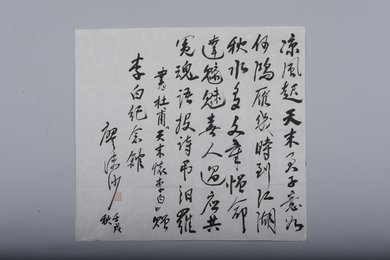 凉风起天末君子意如
何鸿雁几时到江湖
秋水多文章憎命
达魑魅喜人过应共
冤魂语投诗吊汨罗
书杜甫天末怀李白颂
李白纪念馆
廖沫沙
壬戌
秋